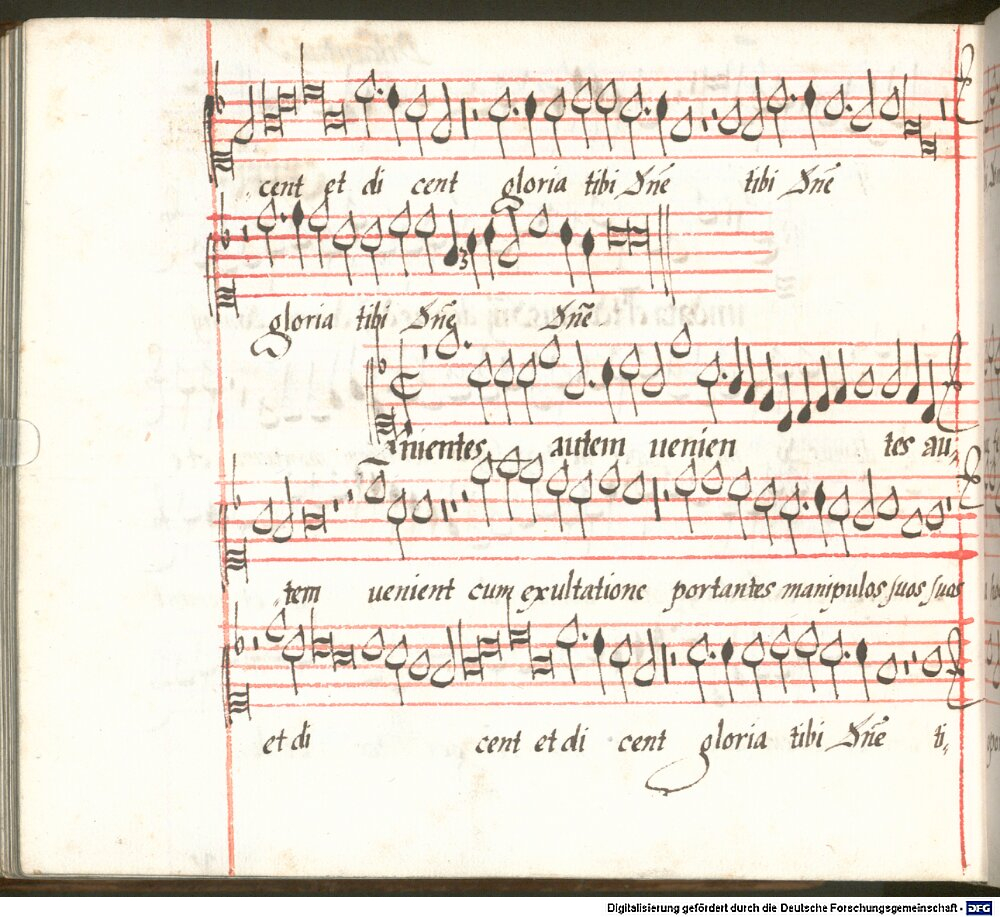 cent et di cent gloria tibi Dnē tibi Dnē
gloria tibi Dnē Dnē
nientes autem uenien tes au-
tem uenient cum exultatione portantes manipulos suos suos
et di cent et di cent gloria tibi Dnē ti-
Digitalisierung gefördert durch die Deutsche Forschungsgemeinschaft - DFG